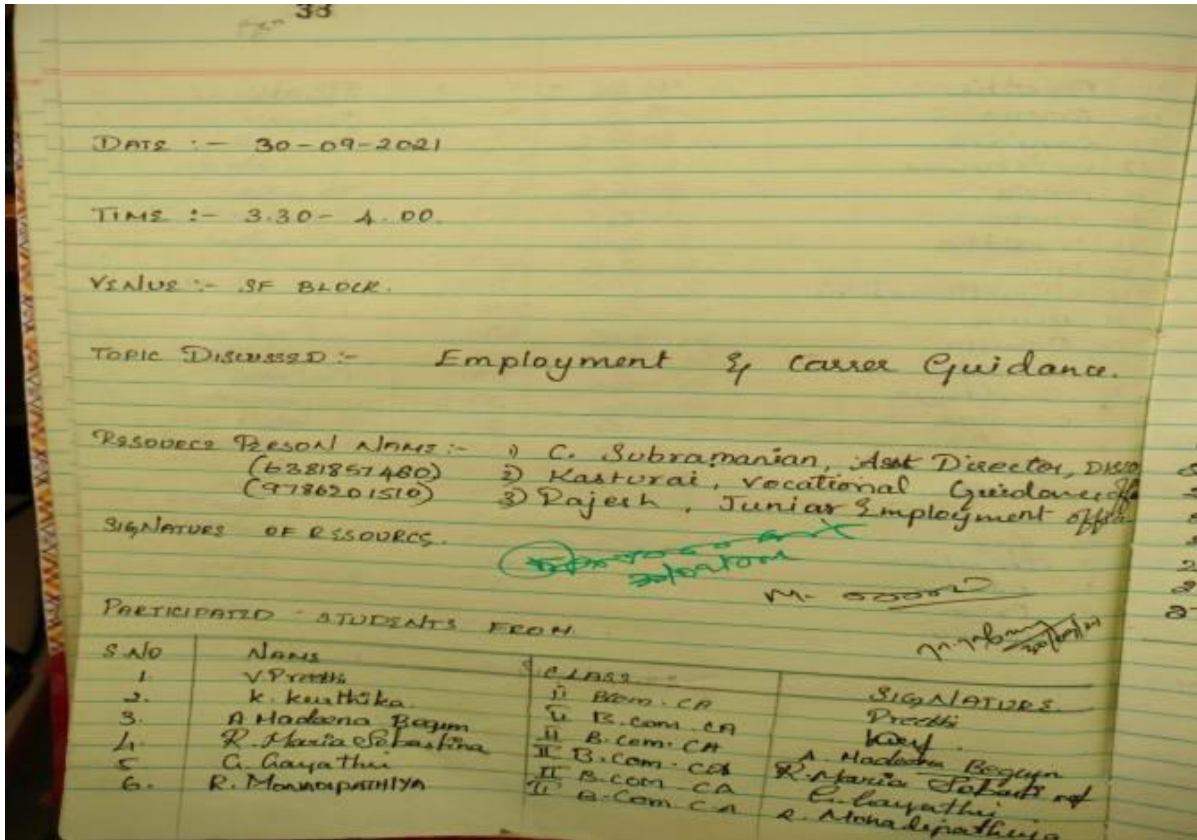 33
DATE :- 30-09-2021
TIME :- 3.30 - 4.00.
VENUE :- SF BLOCK.
TOPIC DISCUSSED :- Employment & Carrer Guidance.
RESOURCE PERSON NAME :- 1) C. Subramanian, Asst Director,
(6381857460) 2) Kasturai, Vocational Guidance
(9786201510) 3) Rajesh, Junior Employment
SIGNATURE OF RESOURCE.
PARTICIPATED STUDENTS FROM
S.NO NAME CLASS SIGNATURE
1. V Preethi II Bcom. CA Preethi
2. K. Keerthika II B.com. CA
3. A Madeena Begum II B.com. CA A. Madeena Begum
4. R. Maria Sebastina II B.com. CA R. Maria
5 G. Gayathri II B.com CA G. Gayathri
6. R. II B.Com CA R.